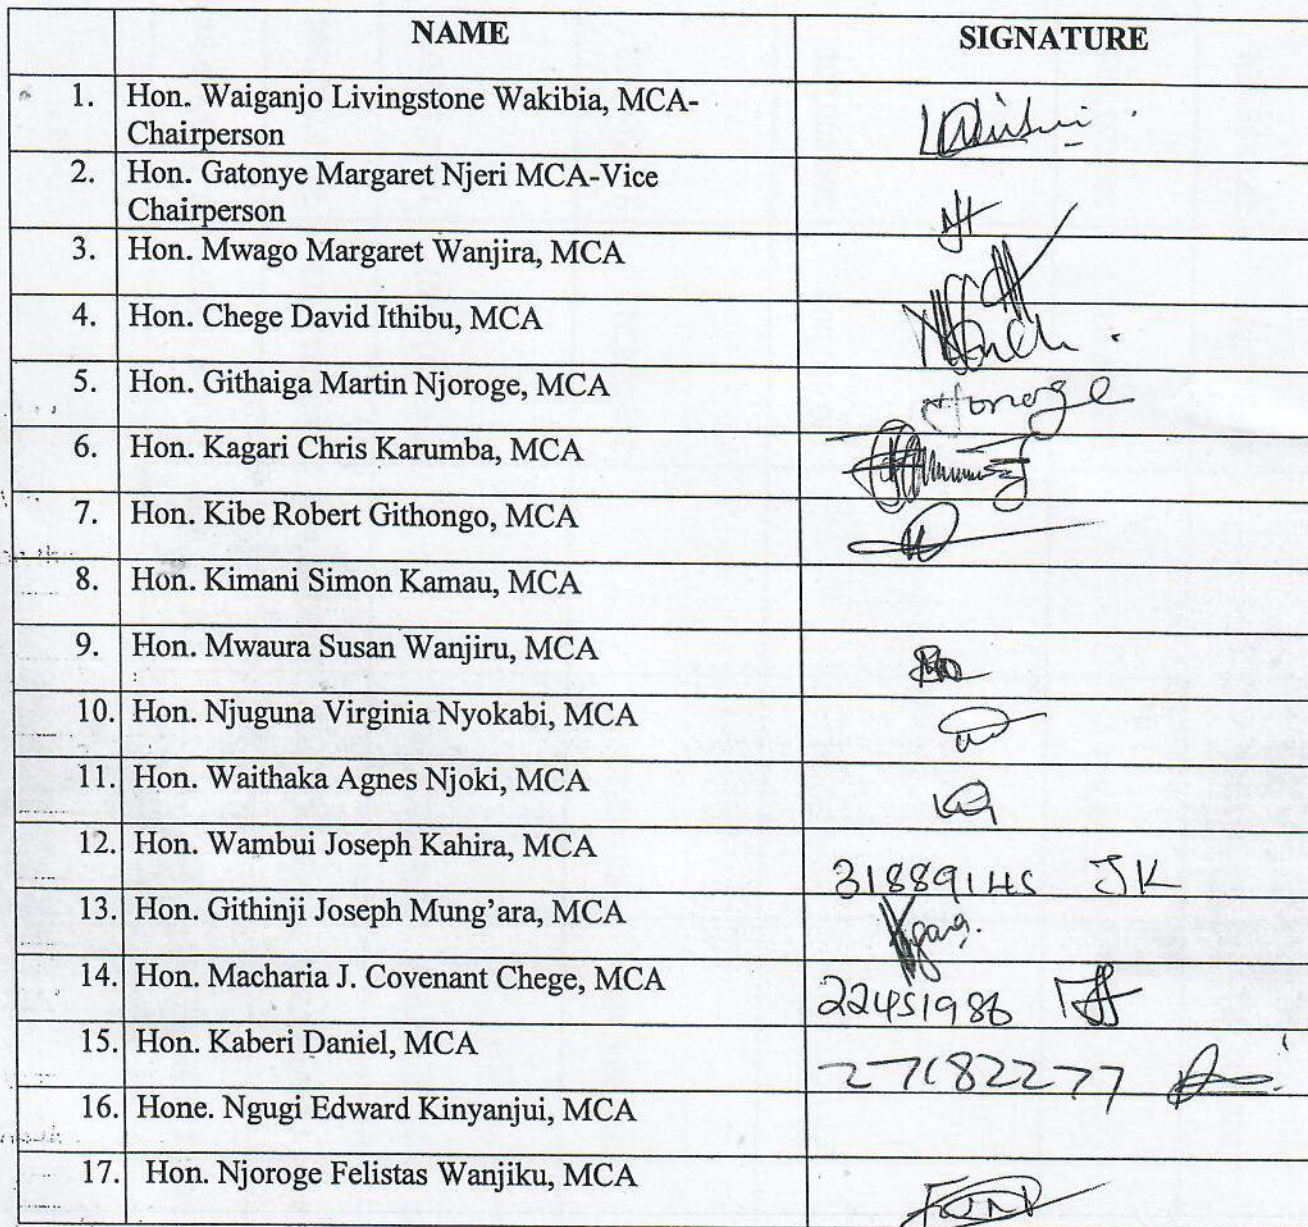 NAME SIGNATURE
1. Hon. Waiganjo Livingstone Wakibia, MCA-
Chairperson
2. Hon. Gatonye Margaret Njeri MCA-Vice
Chairperson
3. Hon. Mwago Margaret Wanjira, MCA
4. Hon. Chege David Ithibu, MCA
5. Hon. Githaiga Martin Njoroge, MCA
6. Hon. Kagari Chris Karumba, MCA
7. Hon. Kibe Robert Githongo, MCA
8. Hon. Kimani Simon Kamau, MCA
9. Hon. Mwaura Susan Wanjiru, MCA
10. Hon. Njuguna Virginia Nyokabi, MCA
11. Hon. Waithaka Agnes Njoki, MCA
12. Hon. Wambui Joseph Kahira, MCA
31889145 JK
13. Hon. Githinji Joseph Mung'ara, MCA
14. Hon. Macharia J. Covenant Chege, MCA
22451986
15. Hon. Kaberi Daniel, MCA
27182277
16. Hone. Ngugi Edward Kinyanjui, MCA
17. Hon. Njoroge Felistas Wanjiku, MCA